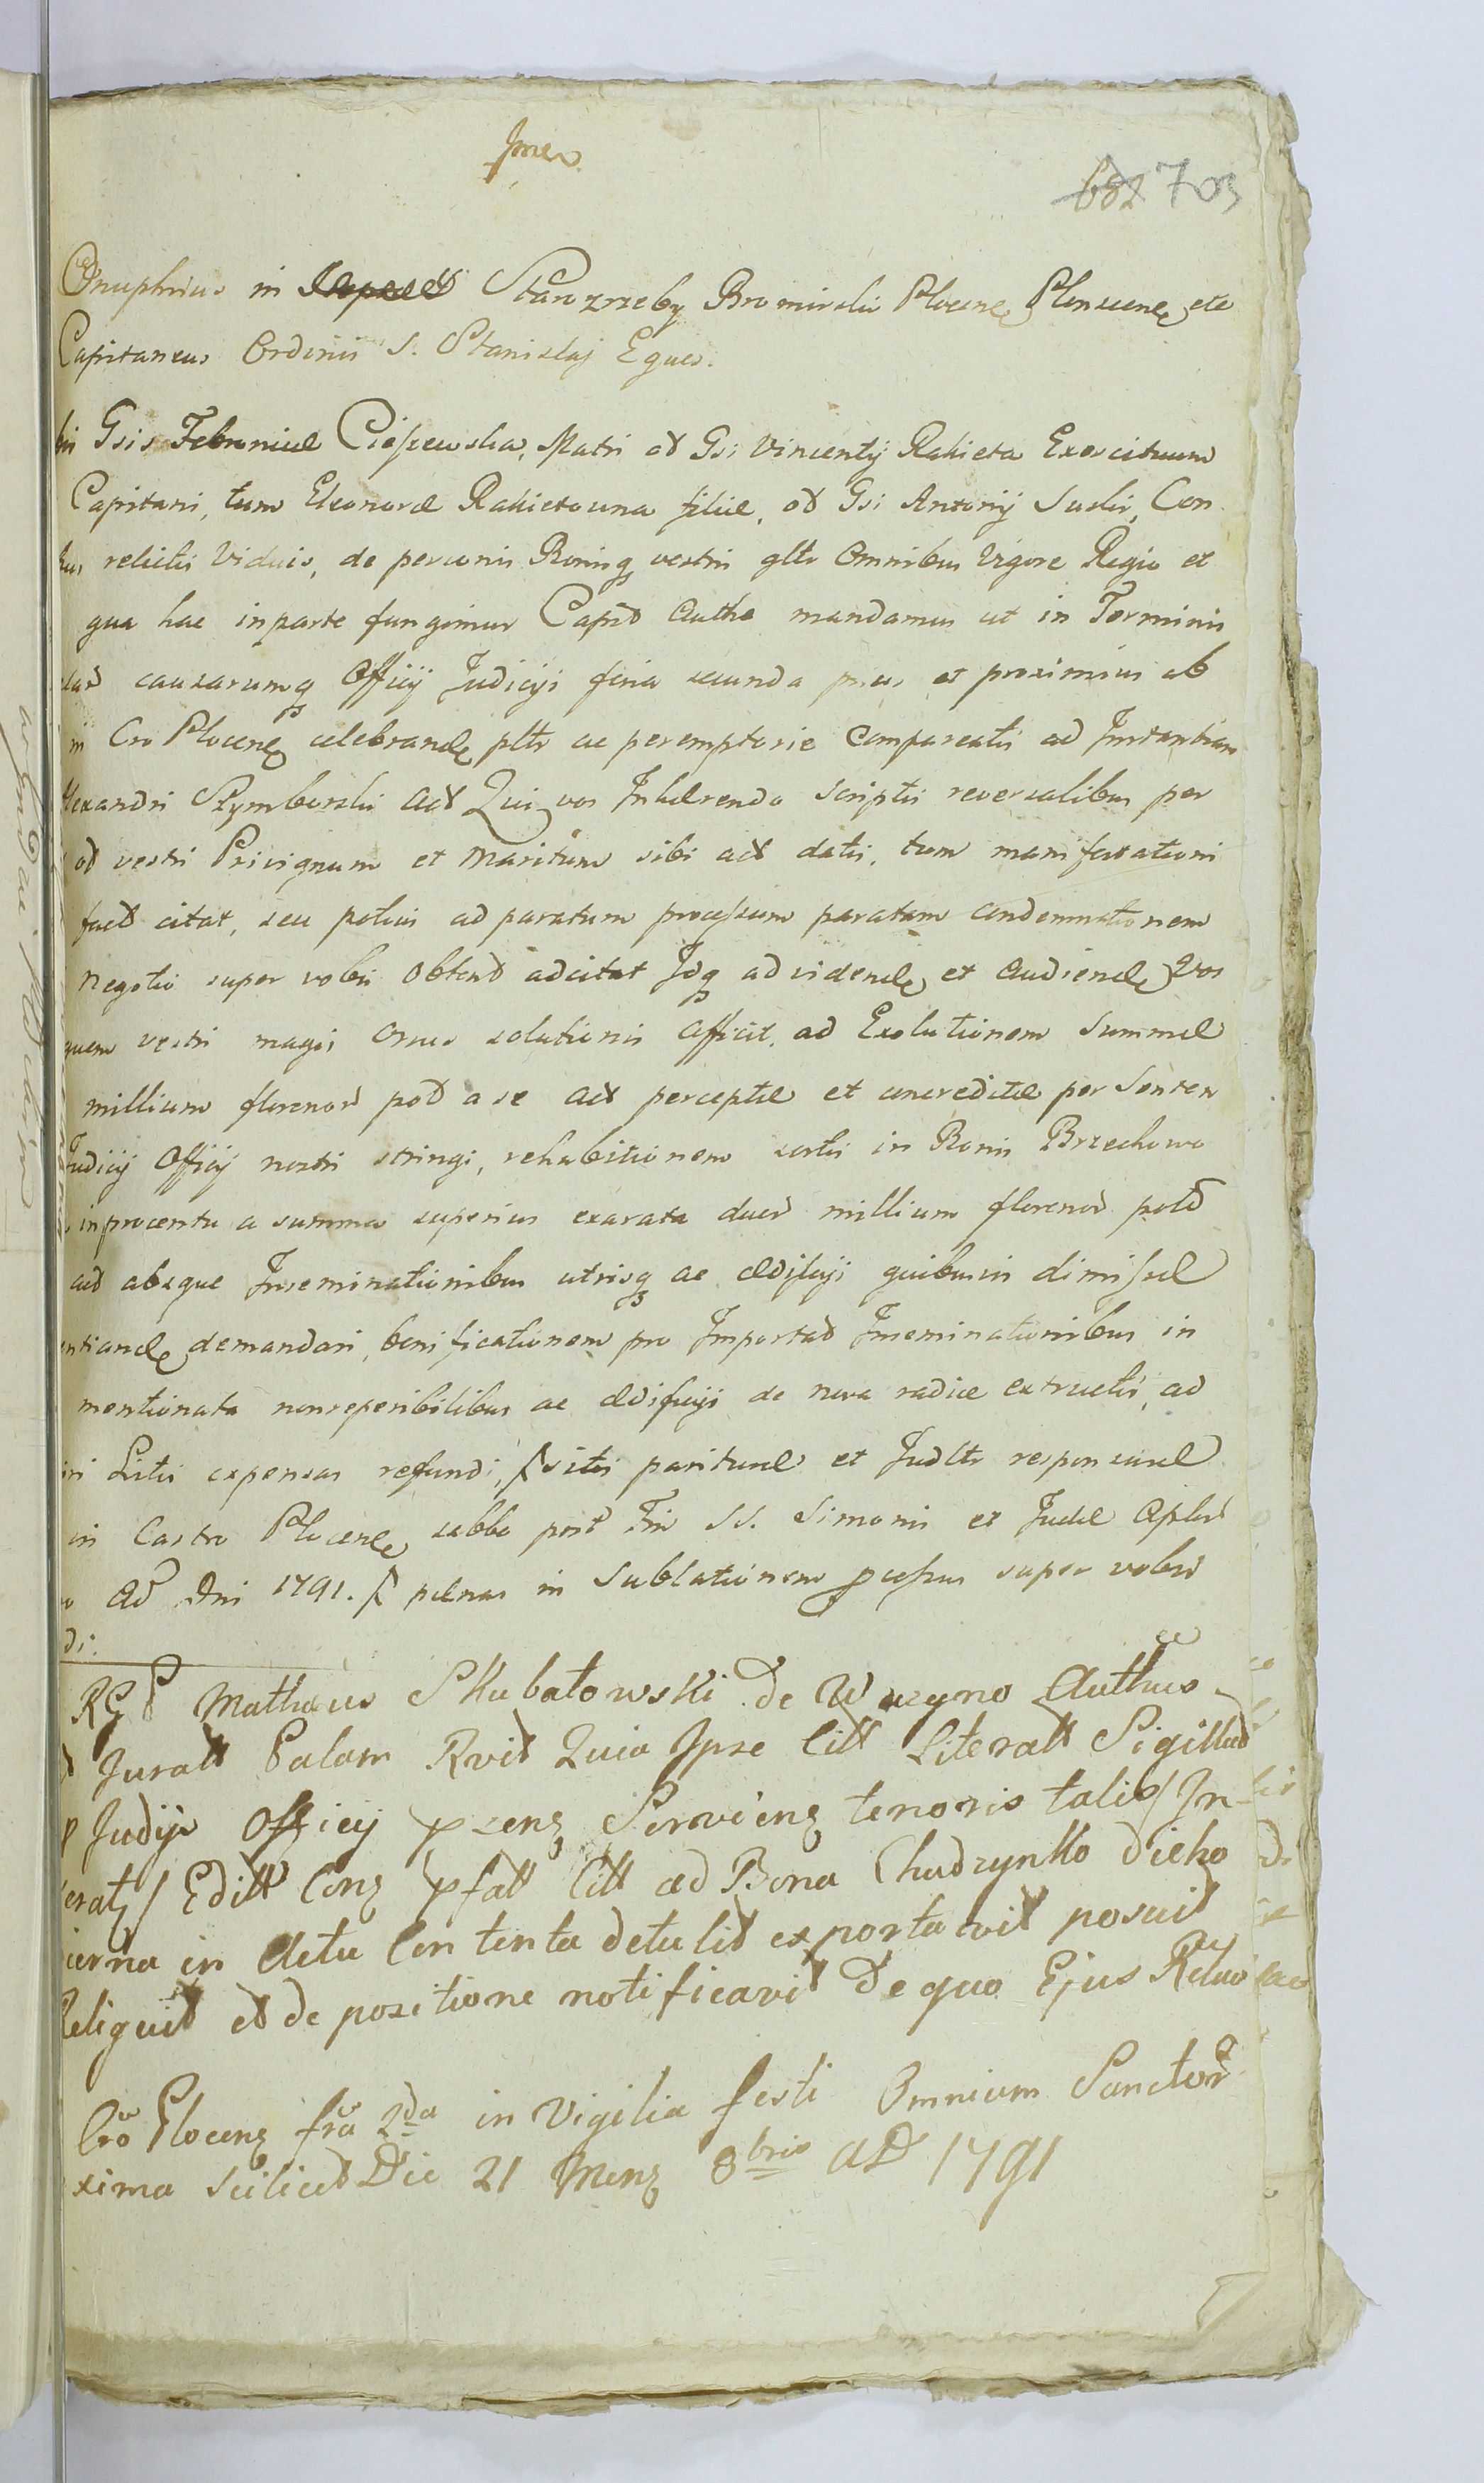 682 703
Onuphrius in Starozrzeby Bromirski Plocens Plonscens etc
Capitaneus Ordinis S. Stanislaj Eques.
Gsis Febroniæ Cioszewska, Matri ad Gsi Vincentij Rakieta Exercituum
Capitani, tum Eleonoræ Rakietowna filiæ, ad Gsi Antonij Suski, Con
relictis Viduis, de personis Bonisq vestris gltr Omnibus Vigore Regio et
qua hac inparte fungimur Captd Autha mandamus ut in Terminis
causarumq Officij Judicijs feria secunda et proximius ab
in Cro Plocens celebrand pltr ac peremptorie Compareatis ad Instantiam
lexandri Szymborski Act Qui vos Inhærendo scriptis reversalibus per
od vestri Privignum et Maritum sibi act datis, tum manifestationi
fact citat, seu potius ad paratum processum paratam condemnationem
Negotio super vobis Obtent adcitat Idq ad videnda et Audienda Vos
quem vestri magis Onus solutionis afficit, ad Exolutionem Summæ
millium florenor pol a se Act perceptæ et concreditæ per Senten
Judicij Officij nostri stringi, rehabitionem sortis in Bonis Brzechowo
inprocentu a summa superius exarata duor millium florenor pold
absque Inseminationibus utrisq ac ædificijs quibusvis dimissæ
demandari, bonificationem pro Importat Inseminationibus in
mentionata nonreperibilibus ac ædificijs de nova radice extructis, ad
Litis expensas refundi, sitis parituræ et Judltr responsuræ
in Castro Plocens sabbo post Fm SS. Simonis et Judæ Aplor
Ad Dni 1791. pænas in Sublationem pcessus super vobis
di.
RG P Mathæus Skubatowski de Wazyno Authus
Juratt Palam Rvit Quia Ipse Citt Literatt Sigillat
Judijs Officij pzens Serviens tenoris talis / In
serat / Editt Cons pfatt Citt ad Bona Chudzynko dicho
in Actu Contenta detulit exportavit posuit
Reliquit et de positione notificavit De quo Ejus Relao
Cro Plocens fra 2da in Vigilia festi Omnium Sanctor
xima scilicet Die 21 Mens 8bris AD 1791